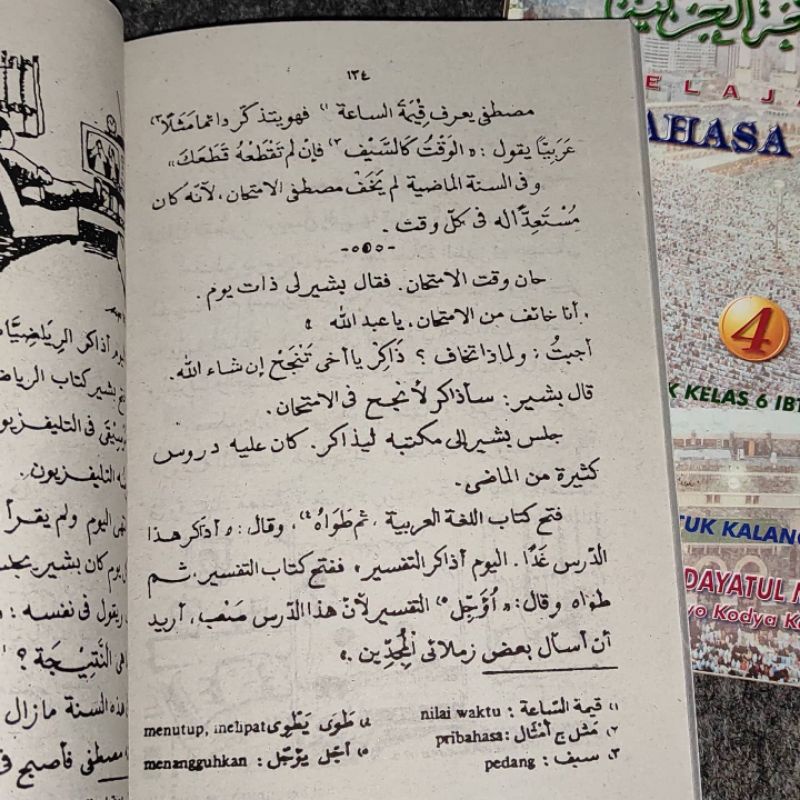 ١٣٤
مصطفى يعرف قِيْمَةَ الساعة ١) فهو يتذكّر دائما مَثَلًا ٢)
عَرَبِيًّا يقول : « الوَقْتُ كَالسَّيْفِ ٣) فَإِنْ لَمْ تَقْطَعْهُ قَطَعَكَ»
وفى السنة الماضية لم يَخَفْ مصطفى الامتحان، لأنّه كان
مُسْتَعِدًّا له فى كلّ وقت .
حان وقت الامتحان. فقال بشير لى ذات يوم.
أنا خائف من الامتحان، يا عبد الله
أجبتُ : ولماذا تخاف ؟ ذَاكِرْ يا أخى تَنْجَحْ إن شاء الله.
قال بشير : سأذاكر لأنجح فى الامتحان.
جلس بشير إلى مكتبه ليذاكر. كان عليه دروس
كثيرة من الماضى.
فتح كتاب اللغة العربية ، ثم طَوَاهُ ٤)، وقال : « أذاكر هذا
الدّرس غَدًا . اليوم أذاكر التفسير» ففتح كتاب التفسير، ثم
طواه وقال : « أُؤَجِّل ٥) التفسير لأنّ هذا الدّرس صَعْب، أريد
أن أسأل بعض زملائى المُجِدِّين »
١) قيمة السَّاعة : nilai waktu
٢) مَثَل ج أَمْثَال : pribahasa
٣) سيف : pedang
٤) طَوَى يَطْوِى menutup, melipat
٥) أجّل يؤجّل : menangguhkan
أذاكر الرِيَاضِيَّا
بشير كتاب الرياض
فى التليفزيو
التليفزيون.
اليوم ولم يقرأ
يوم كان بشير يجلس
يقول فى نفسه :
النَّتِيْجَة ؟
هذه السنة مازال
مصطفى فأصبح فى
ELAJA
AHASA
4
K KELAS 6 IBT
TUK KALANG
DAYATUL M
yo Kodya K